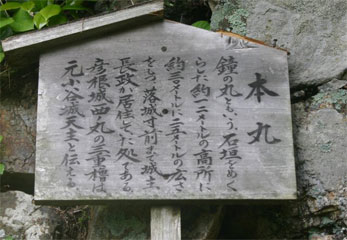 本丸
鐘の丸ともいう。石垣をめぐ
らした約一二メートルの高所に
約三〇メートルに二五メートルの広さ
をもつ。落城寸前まで城主、
長政が居住していた処である。
彦根城西の丸の三重櫓は
元小谷城天主と伝える